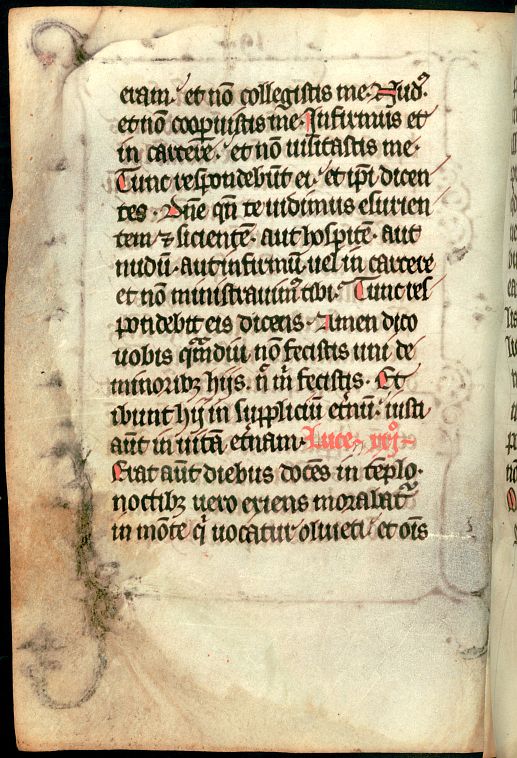 eram. et nō collegistis me. Nudꝰ.
et nō cooꝑuistis me. Infirmus et
in carcere. et nō uisitastis me.
Tunc respondebūt ei. et ip̄i dicen
tes. Dn̄e qn̄ te uidimus esurien
tem ⁊ sicientē. aut hospitē. aut
nudū. aut infirmū. uel in carcere
et nō ministrauimꝰ tibi. Tunc res
pondebit eis dicens. Amen dico
uobis qͣmdiu nō fecistis uni de
minoribꝫ hijs. n̄ m̄ fecistis. Et
ibunt hij in suppliciū et̄nū. iusti
aūt in uitā et̄nam. Luce xxj.
Erat aūt diebus docēs in tēplo.
noctibꝫ uero exiens morabatᷣ
in mōte qͥ uocatur oliueti. et oīs